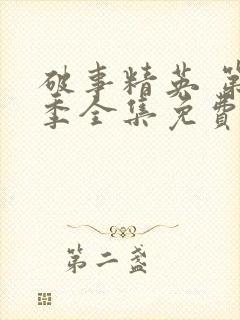 破事精英 第
季全集免费
第二盏